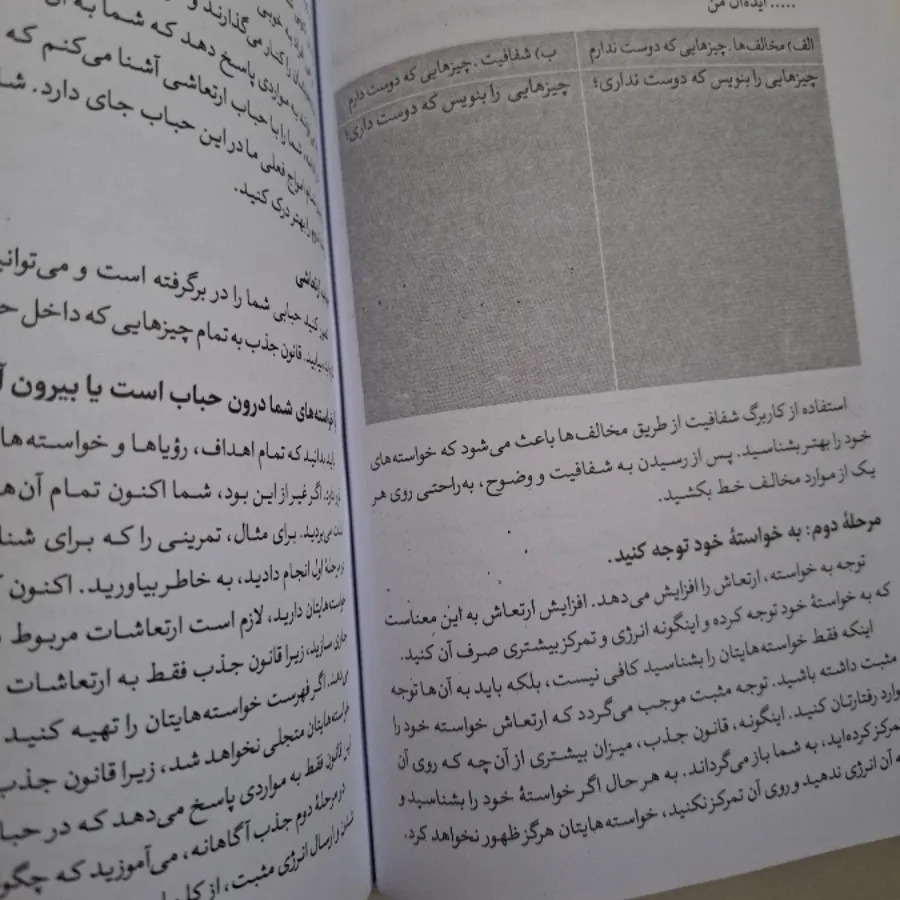 ..... ایده‌آل من
الف) مخالف‌ها. چیزهایی که دوست ندارم
چیزهایی را بنویس که دوست نداری؛
ب) شفافیت. چیزهایی که دوست دارم
چیزهایی را بنویس که دوست داری؛
استفاده از کاربرگ شفافیت از طریق مخالف‌ها باعث می‌شود که خواسته‌های
خود را بهتر بشناسید. پس از رسیدن به شفافیت و وضوح، به‌راحتی روی هر
یک از موارد مخالف خط بکشید.
مرحلهٔ دوم: به خواستهٔ خود توجه کنید.
توجه به خواسته، ارتعاش را افزایش می‌دهد. افزایش ارتعاش به این معناست
که به خواستهٔ خود توجه کرده و اینگونه انرژی و تمرکز بیشتری صرف آن کنید.
اینکه فقط خواسته‌هایتان را بشناسید کافی نیست، بلکه باید به آن‌ها توجه
مثبت داشته باشید. توجه مثبت موجب می‌گردد که ارتعاش خواسته خود را
وارد رفتارتان کنید. اینگونه، قانون جذب، میزان بیشتری از آن‌چه که روی آن
تمرکز کرده‌اید، به شما باز می‌گرداند. به هر حال اگر خواستهٔ خود را بشناسید و
به آن انرژی ندهید و روی آن تمرکز نکنید، خواسته‌هایتان هرگز ظهور نخواهد کرد.
خوبی
را کنار می‌گذارند و
مواردی پاسخ دهد که شما به آن
شما را با حباب ارتعاشی آشنا می‌کنم که
امواج فعلی ما در این حباب جای دارد.
را بهتر درک کنید.
ارتعاشی
کنید حبابی شما را در برگرفته است و می‌توانید
بیابید. قانون جذب به تمام چیزهایی که داخل
خواسته‌های شما درون حباب است یا بیرون
بدانید که تمام اهداف، رؤیاها و خواسته‌ها
اگر غیر از این بود، شما اکنون تمام آن‌ها
می‌بردید. برای مثال، تمرینی را که برای
مرحلهٔ اول انجام دادید، به خاطر بیاورید. اکنون
خواسته‌هایتان دارید، لازم است ارتعاشات مربوط
جاری سازید، زیرا قانون جذب فقط به ارتعاشات
اگر فهرست خواسته‌هایتان را تهیه کنید
خواسته‌هایتان متجلی نخواهد شد، زیرا قانون جذب
این قانون فقط به مواردی پاسخ می‌دهد که در
در مرحلهٔ دوم جذب آگاهانه، می‌آموزید که
ارسال انرژی مثبت، از